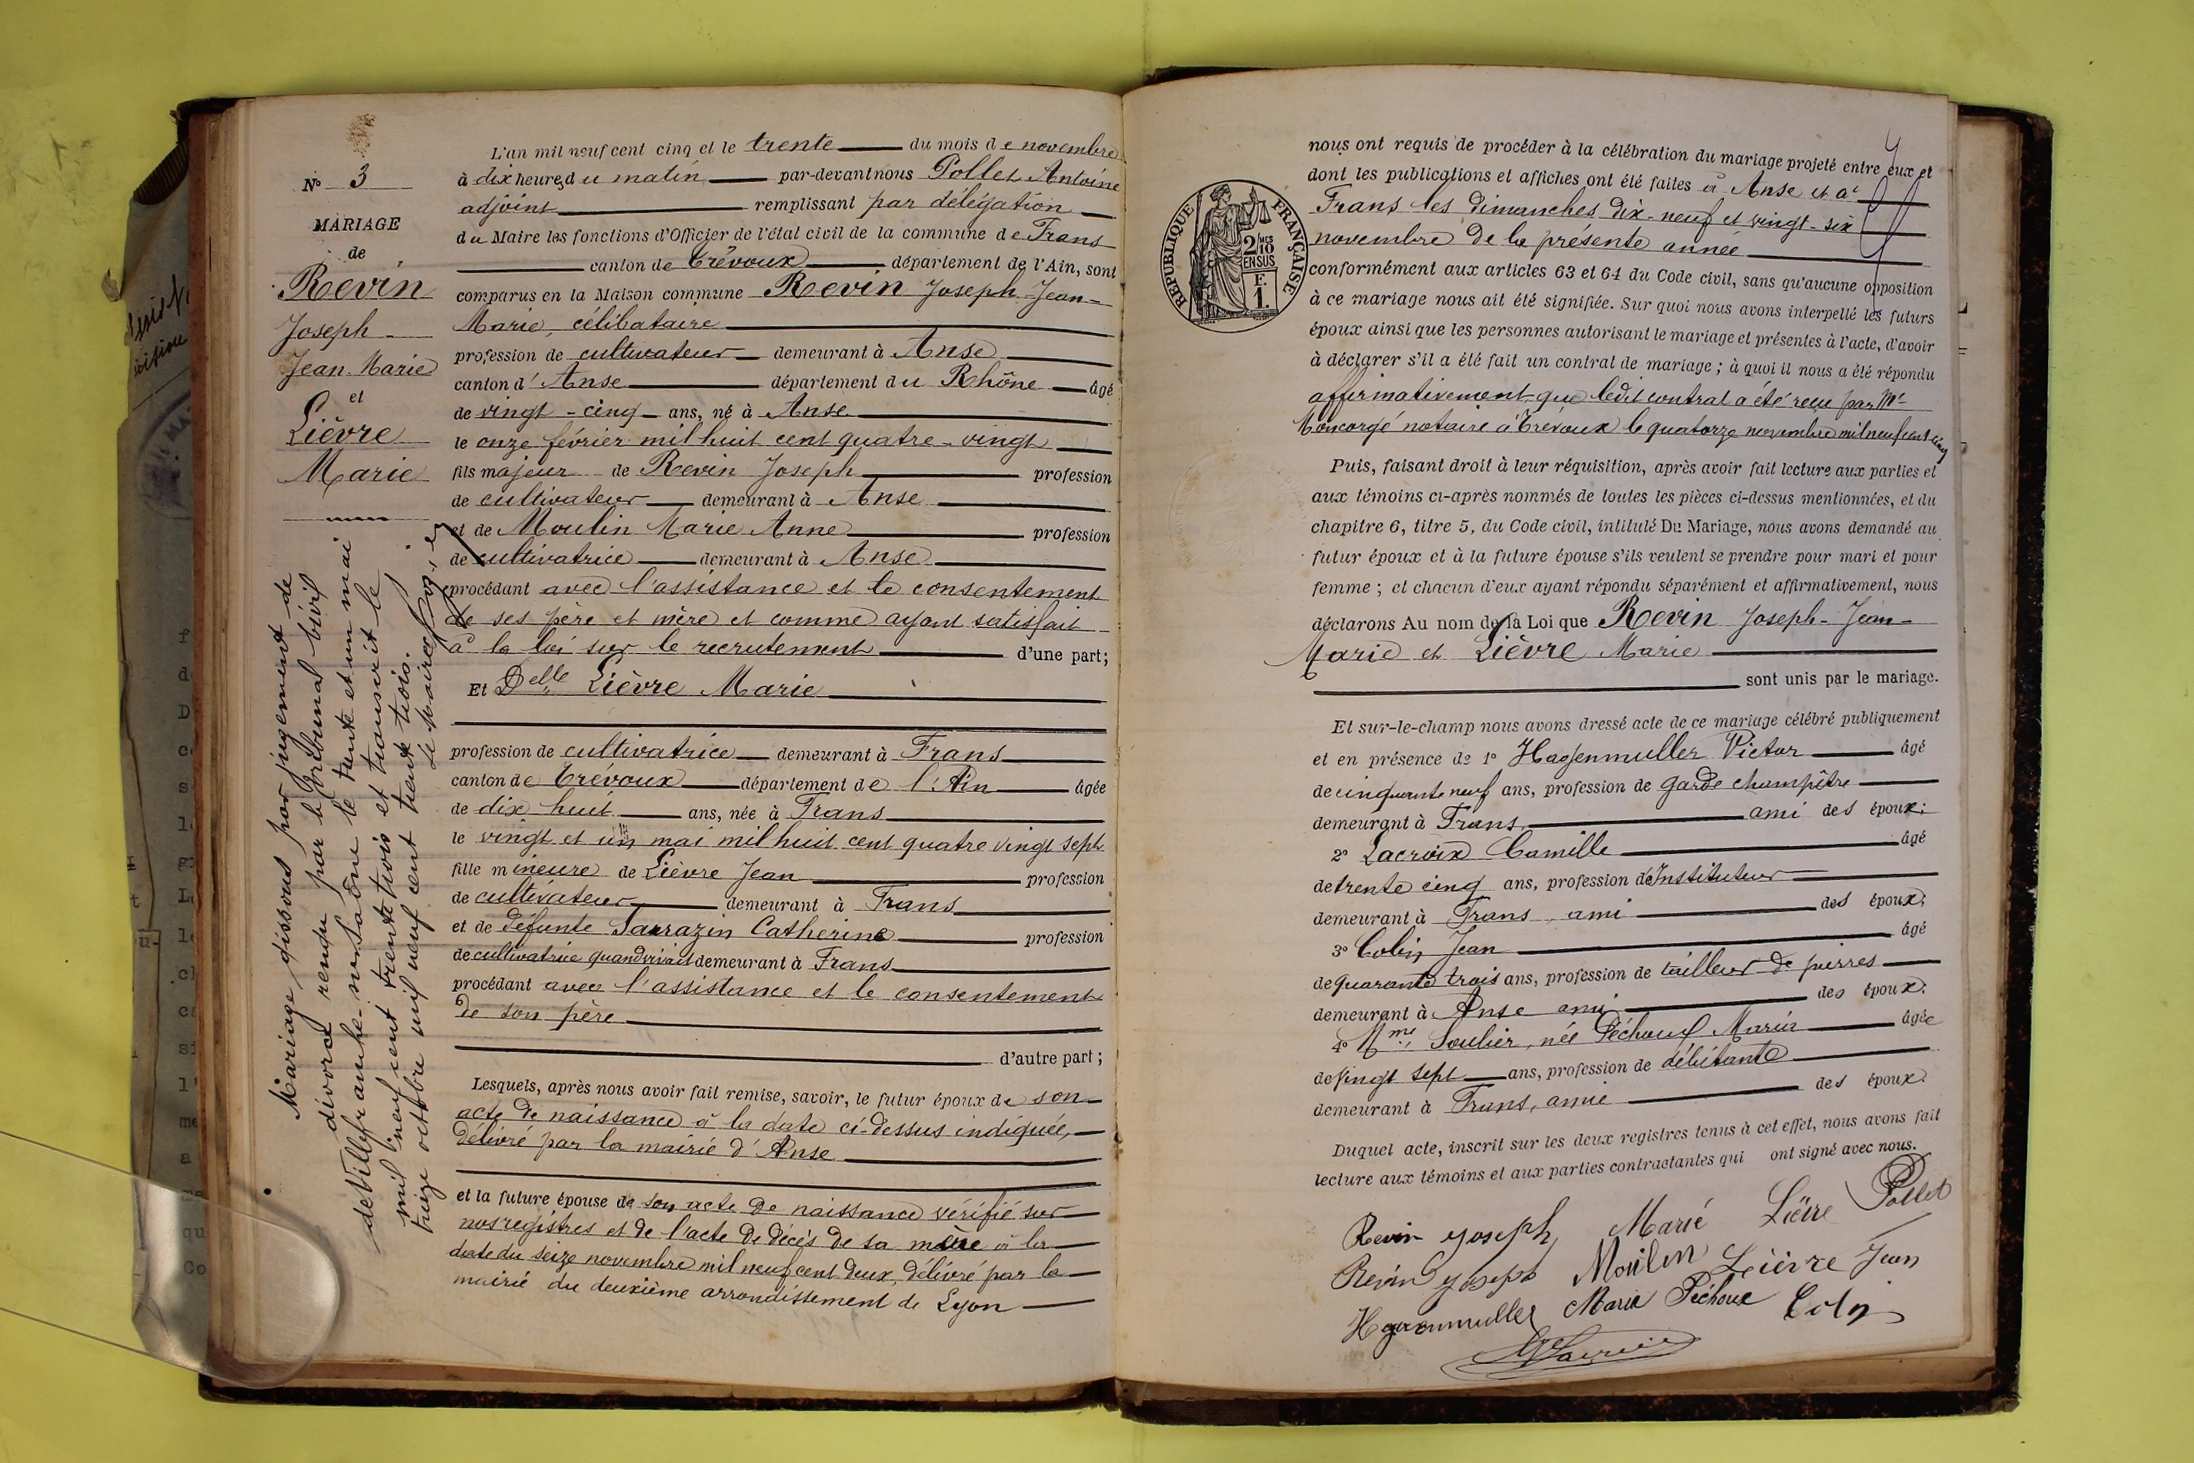 N° 3
MARIAGE
de
Revin
Joseph
Jean Marie
et
Lièvre
Marie
Mariage dissous par jugement de
divorce rendu par le tribunal civil
de Villefranche-sur-Saône le trente et un mai
mil neuf cent trente trois et transcrit le
treize octobre mil neuf cent trente trois.
Le Maire
L'an mil neuf cent cinq et le trente du mois de novembre
à dix heures du matin par-devant nous Pollet Antoine
adjoint remplissant par délégation
du Maire les fonctions d'Officier de l'état civil de la commune de Frans
canton de Trévoux département de l'Ain, sont
comparus en la Maison commune Revin Joseph Jean-
Marie, célibataire
profession de cultivateur demeurant à Anse
canton d'Anse département du Rhône âgé
de vingt-cinq ans, né à Anse
le onze février mil huit cent quatre-vingt
fils majeur de Revin Joseph profession
de cultivateur demeurant à Anse
et de Moulin Marie Anne profession
de cultivatrice demeurant à Anse
procédant avec l'assistance et le consentement
de ses père et mère et comme ayant satisfait
à la loi sur le recrutement d'une part;
Et Delle Lièvre Marie
profession de cultivatrice demeurant à Frans
canton de Trévoux département de l'Ain âgée
de dix huit ans, née à Frans
le vingt et un mai mil huit cent quatre vingt sept
fille mineure de Lièvre Jean profession
de cultivateur demeurant à Frans
et de défunte Sarrazin Catherine profession
de cultivatrice quand vivait demeurant à Frans
procédant avec l'assistance et le consentement
de son père
d'autre part;
Lesquels, après nous avoir fait remise, savoir, le futur époux de son
acte de naissance à la date ci-dessus indiquée,
délivré par la mairie d'Anse
et la future épouse de son acte de naissance vérifié sur
nos registres et de l'acte de décès de sa mère à la
date du seize novembre mil neuf cent deux, délivré par la
mairie du deuxième arrondissement de Lyon
RÉPUBLIQUE FRANÇAISE
2/10 EN SUS
F. 1.
nous ont requis de procéder à la célébration du mariage projeté entre eux et
dont les publications et affiches ont été faites à Anse et à
Frans les dimanches dix-neuf et vingt-six
novembre de la présente année
conformément aux articles 63 et 64 du Code civil, sans qu'aucune opposition
à ce mariage nous ait été signifiée. Sur quoi nous avons interpellé les futurs
époux ainsi que les personnes autorisant le mariage et présentes à l'acte, d'avoir
à déclarer s'il a été fait un contrat de mariage; à quoi il nous a été répondu
affirmativement que ledit contrat a été reçu par Me
Moncorgé notaire à Trévoux le quatorze novembre mil neuf cent cinq
Puis, faisant droit à leur réquisition, après avoir fait lecture aux parties et
aux témoins ci-après nommés de toutes les pièces ci-dessus mentionnées, et du
chapitre 6, titre 5, du Code civil, intitulé Du Mariage, nous avons demandé au
futur époux et à la future épouse s'ils veulent se prendre pour mari et pour
femme; et chacun d'eux ayant répondu séparément et affirmativement, nous
déclarons Au nom de la Loi que Revin Joseph-Jean-
Marie et Lièvre Marie
sont unis par le mariage.
Et sur-le-champ nous avons dressé acte de ce mariage célébré publiquement
et en présence de 1° Hagenmuller Victor âgé
de cinquante neuf ans, profession de garde champêtre
demeurant à Frans ami des époux;
2° Lacroix Camille âgé
de trente cinq ans, profession d'Instituteur
demeurant à Frans ami des époux;
3° Colin Jean âgé
de quarante trois ans, profession de tailleur de pierres
demeurant à Anse ami des époux;
4° Mme Soulier, née Péchoux Maria âgée
de vingt sept ans, profession de débitante
demeurant à Frans, amie des époux.
Duquel acte, inscrit sur les deux registres tenus à cet effet, nous avons fait
lecture aux témoins et aux parties contractantes qui ont signé avec nous.
Revin Joseph Marie Lièvre Pollet
Revin Joseph Moulin Lièvre Jean
Hagenmuller Maria Péchoux Colin